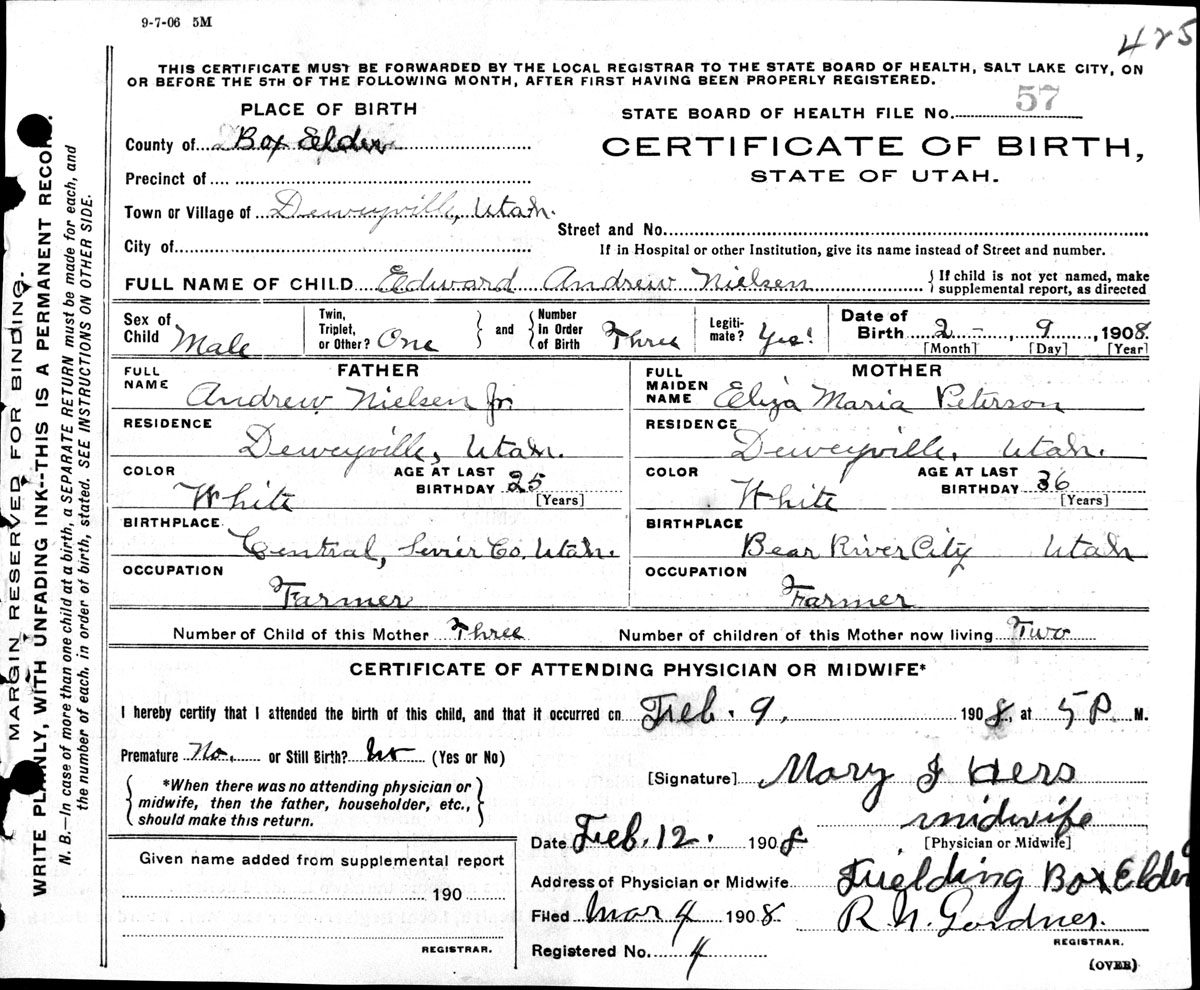 9-7-06 5M
425
THIS CERTIFICATE MUST BE FORWARDED BY THE LOCAL REGISTRAR TO THE STATE BOARD OF HEALTH, SALT LAKE CITY, ON
OR BEFORE THE 5TH OF THE FOLLOWING MONTH, AFTER FIRST HAVING BEEN PROPERLY REGISTERED.
PLACE OF BIRTH
STATE BOARD OF HEALTH FILE No. 57
County of Box Elder
CERTIFICATE OF BIRTH,
STATE OF UTAH.
Precinct of
Town or Village of Deweyville, Utah.
Street and No.
City of
If in Hospital or other Institution, give its name instead of Street and number.
FULL NAME OF CHILD Edward Andrew Nielsen { If child is not yet named, make
supplemental report, as directed
Sex of Child Male
Twin, Triplet, or Other? One } and { Number In Order of Birth Three
Legiti-mate? Yes!
Date of Birth 2 - , 9 , 1908
[Month] [Day] [Year]
FATHER
FULL NAME Andrew Nielsen Jr.
RESIDENCE
Deweyville, Utah.
COLOR White AGE AT LAST BIRTHDAY 25 [Years]
BIRTHPLACE
Central, Sevier Co. Utah.
OCCUPATION
Farmer
MOTHER
FULL MAIDEN NAME Eliza Maria Peterson
RESIDENCE
Deweyville, Utah.
COLOR White AGE AT LAST BIRTHDAY 36 [Years]
BIRTHPLACE
Bear River City Utah
OCCUPATION
Farmer
Number of Child of this Mother Three Number of children of this Mother now living Two
CERTIFICATE OF ATTENDING PHYSICIAN OR MIDWIFE*
I hereby certify that I attended the birth of this child, and that it occurred on Feb. 9, 1908, at 5 P. M.
Premature No. or Still Birth? No (Yes or No)
*When there was no attending physician or
midwife, then the father, householder, etc.,
should make this return.
[Signature] Mary J
midwife
[Physician or Midwife]
Date Feb. 12. 1908
Given name added from supplemental report
190
REGISTRAR.
Address of Physician or Midwife Fielding Box Elder
Filed Mar 4 1908 R. N. Gordner.
REGISTRAR.
Registered No. 4
(OVER)
MARGIN RESERVED FOR BINDING.
WRITE PLAINLY, WITH UNFADING INK--THIS IS A PERMANENT RECORD.
N. B.—In case of more than one child at a birth, a SEPARATE RETURN must be made for each, and
the number of each, in order of birth, stated. SEE INSTRUCTIONS ON OTHER SIDE.